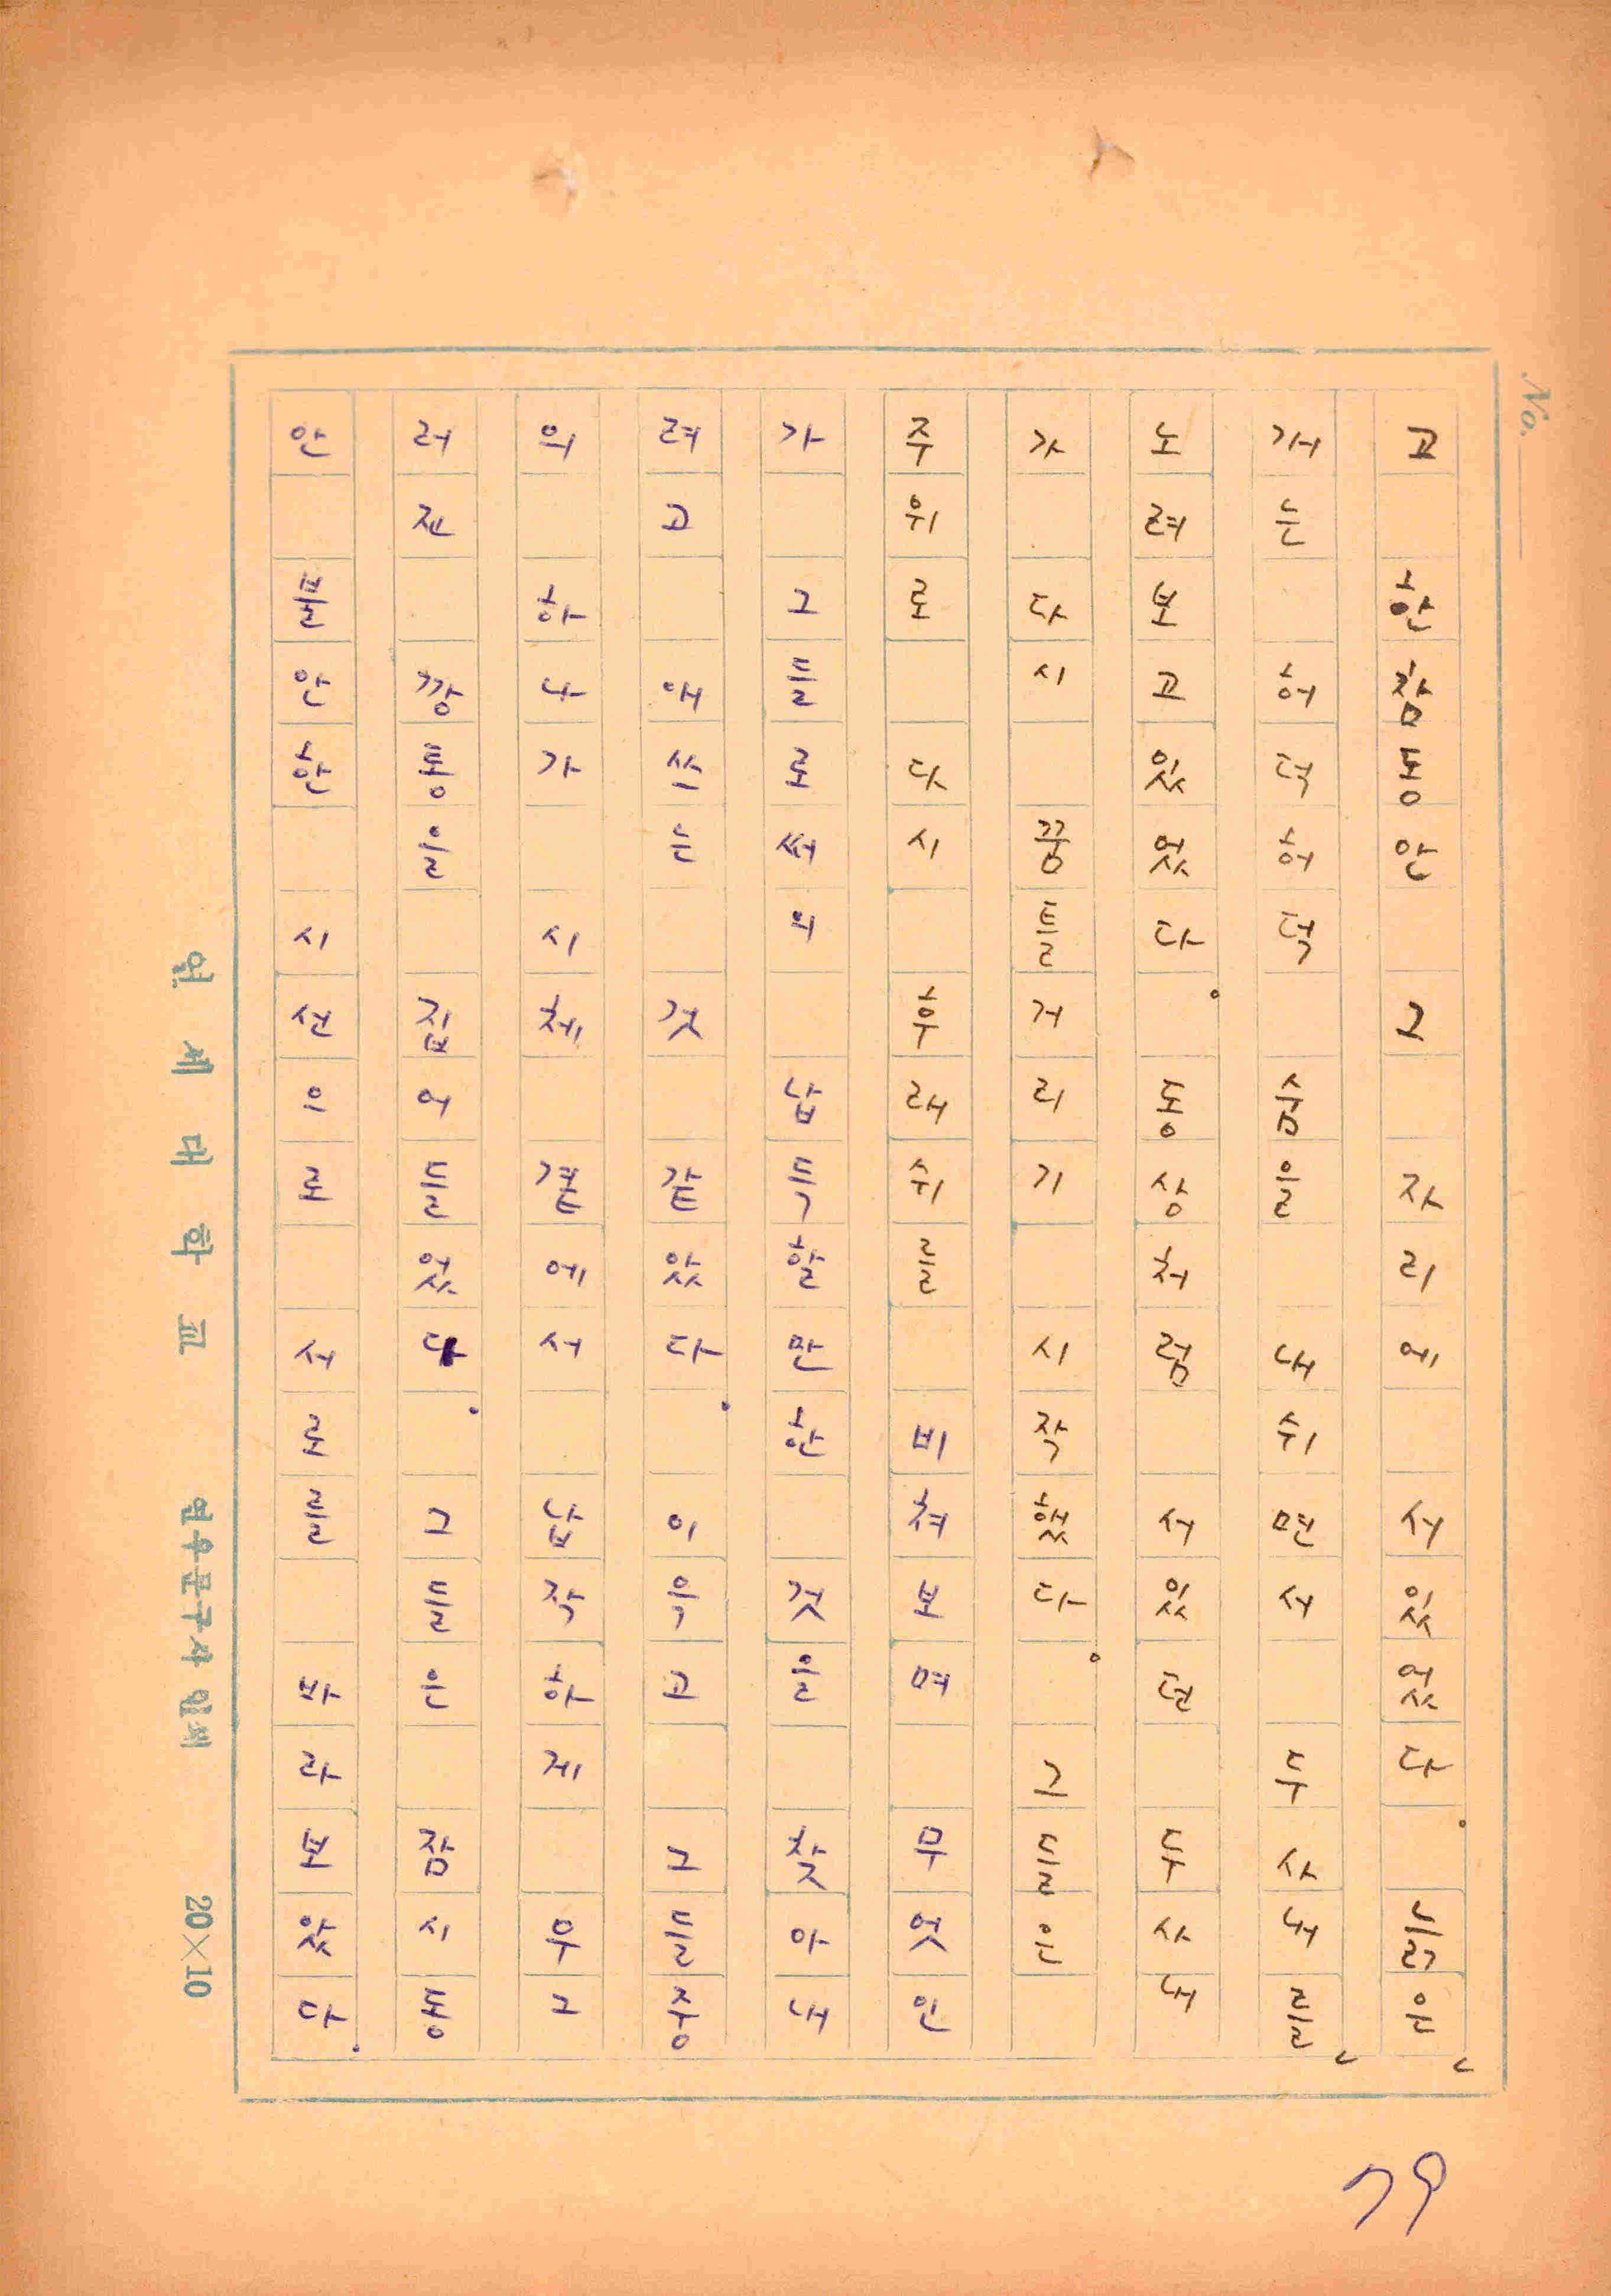 고 한참동안 그 자리에 서있었다. 늙은
개는 허덕허덕 숨을 내쉬면서 두사내를
노려보고있었다. 동상처럼 서있던 두사내
가 다시 꿈틀거리기 시작했다. 그들은
주위로 다시 후래쉬를 비쳐보며 무엇인
가 그들로써의 납득할만한 것을 찾아내
려고 애쓰는 것 같았다. 이윽고 그들중
의 하나가 시체 곁에서 납작하게 무그
러진 깡통을 집어들었다. 그들은 잠시동
안 불안한 시선으로 서로를 바라보았다.
79
No.
연세대학교 연우문구사 임씨 20×10